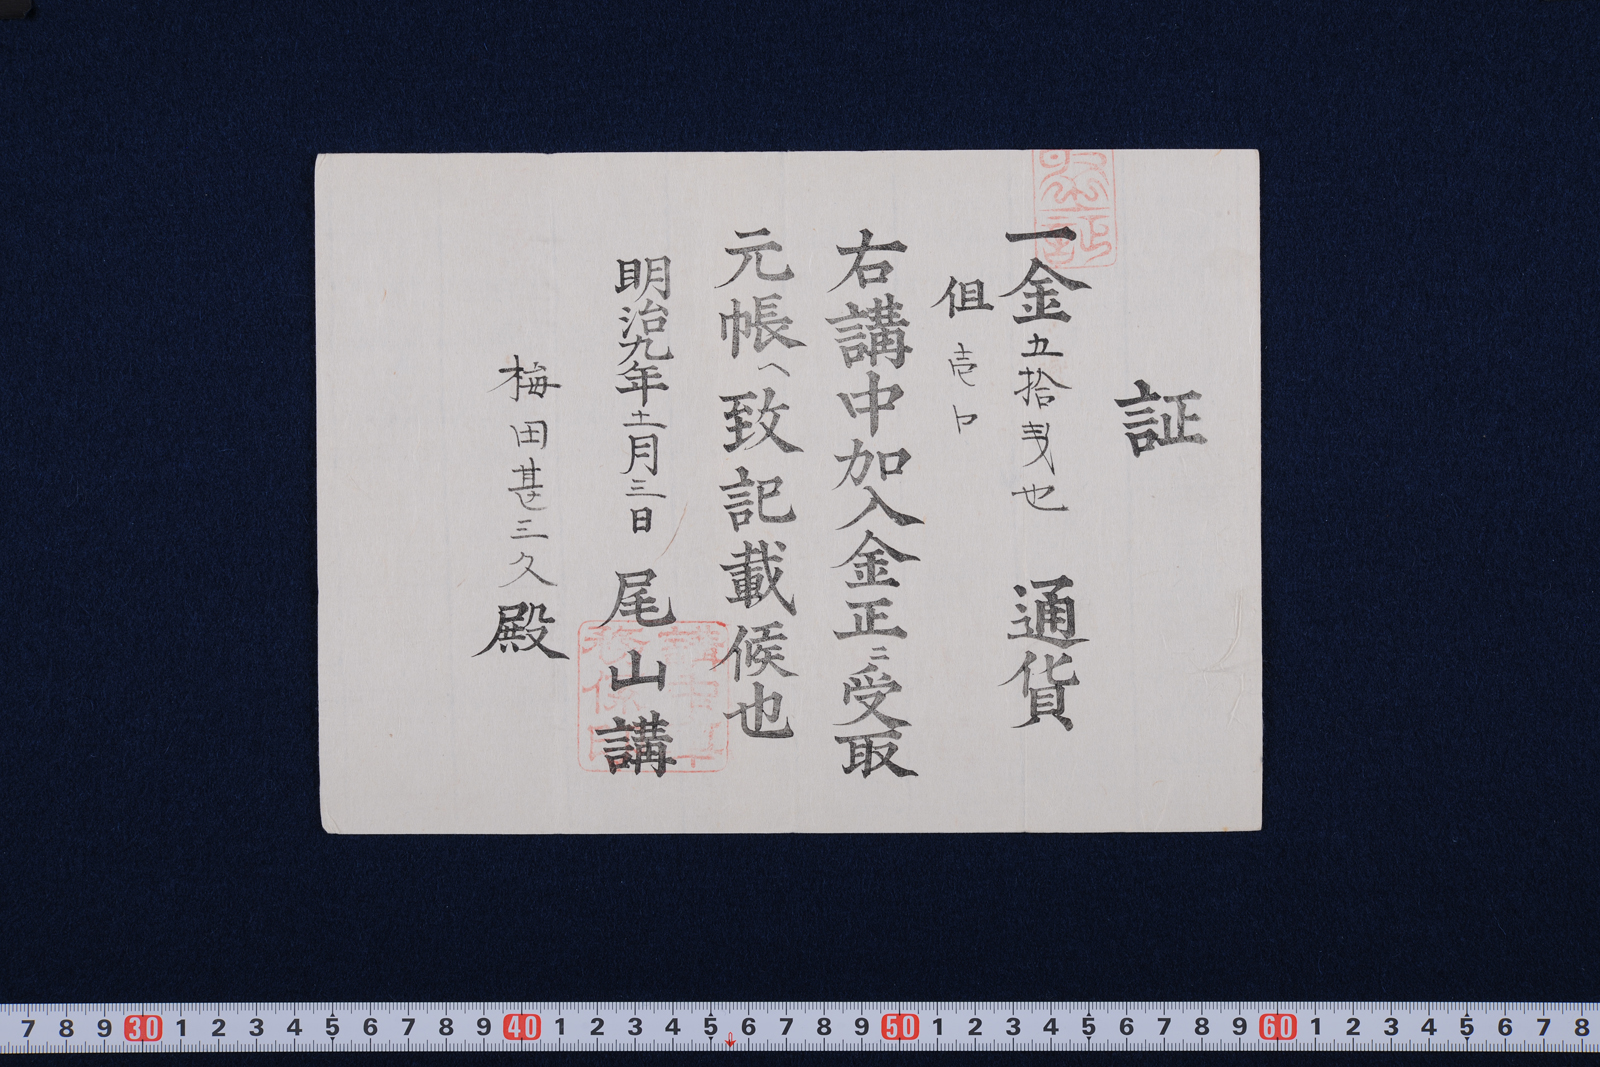 証
一金五拾戋也 通貨
但 壱口
右講中加入金正ニ受取
元帳へ致記載候也
明治九年十一月三日 尾山講
梅田甚三久殿
7 8 9 30 1 2 3 4 5 6 7 8 9 40 1 2 3 4 5 6 7 8 9 50 1 2 3 4 5 6 7 8 9 60 1 2 3 4 5 6 7 8